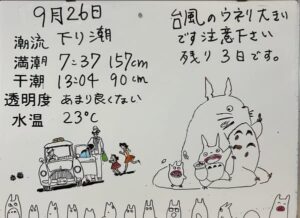 9月26日
潮流 下り潮
満潮 7:37 157cm
干潮 13:04 90cm
透明度 あまり良くない
水温 23℃
台風のウネリ大きい
です注意下さい
残り 3日です。